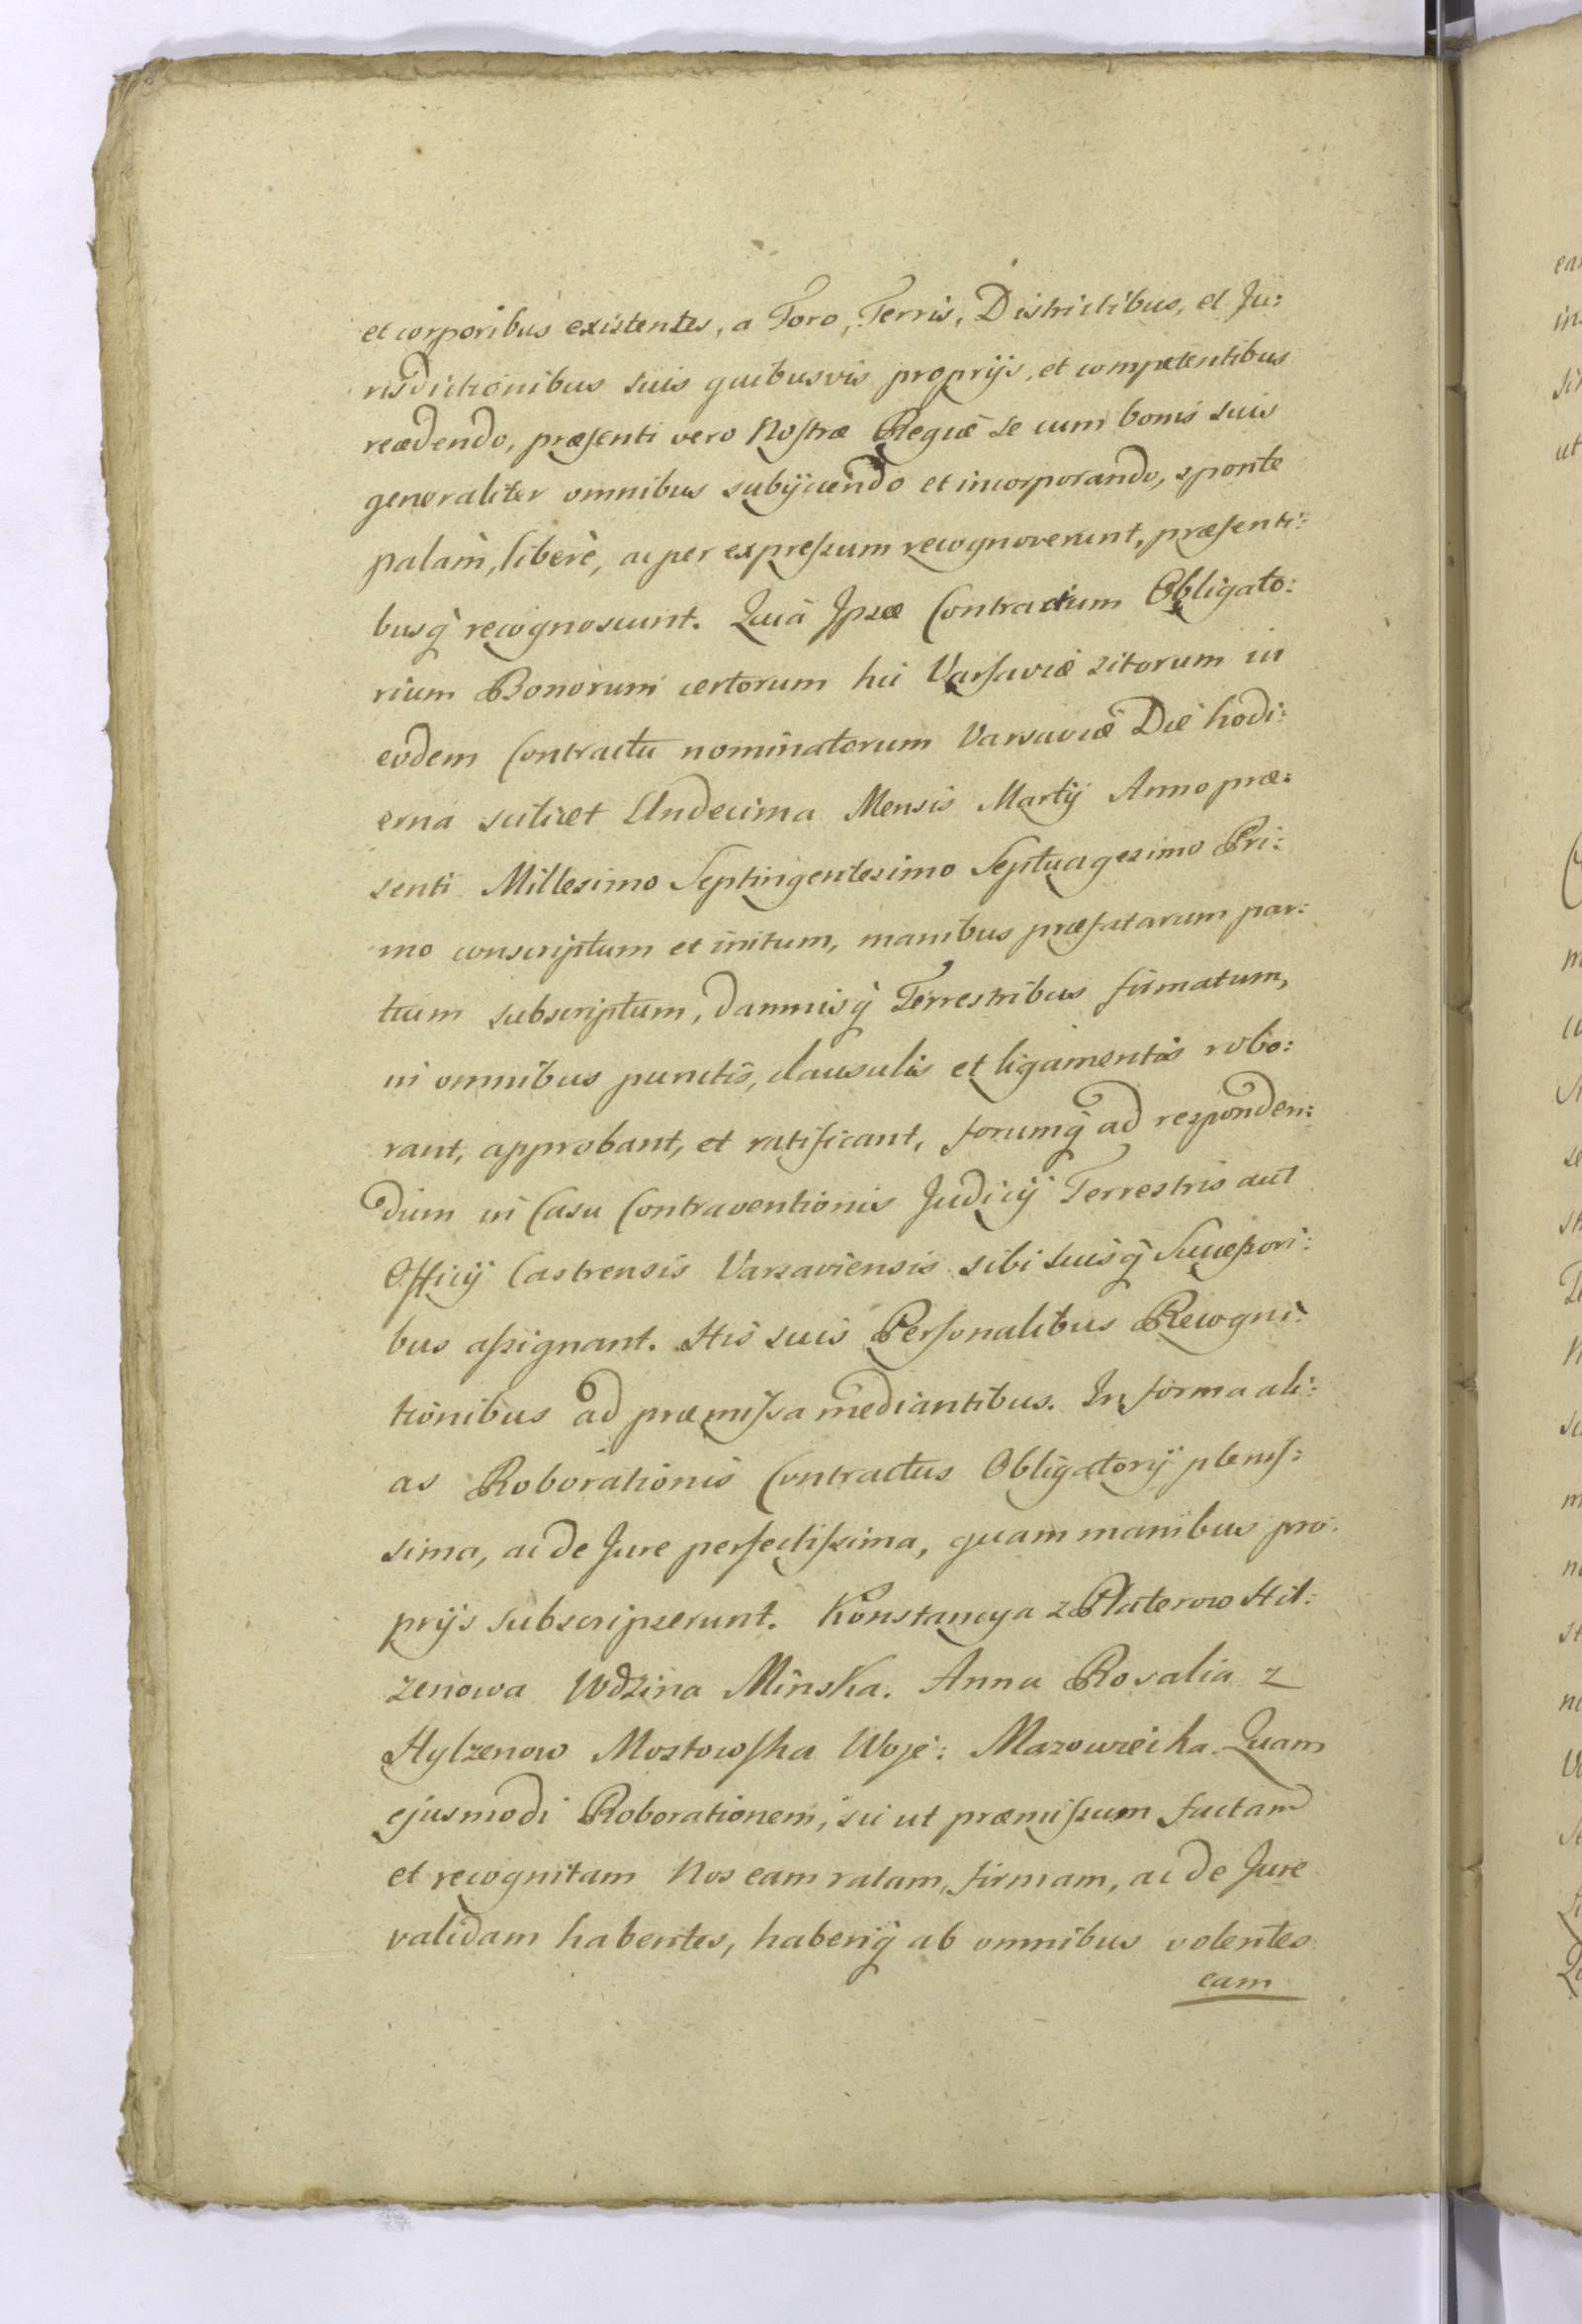 et corporibus existentes, a Foro, Terris, Districtibus, et Ju:
risdictionibus suis quibusvis proprijs, et competentibus
recedendo, præsenti vero Nostræ Regiæ se cum bonis suis
generaliter omnibus subijcendo et incorporando, sponte
palàm, liberè, ac per expressum recognoverunt, præsenti:
busq̀ recognoscunt. Quià Ipsæ Contractum Obligato:
rium Bonorum certorum hic Varsaviæ sitorum in
eodem Contractu nominatorum Varsaviæ Die hodi:
erna scilicet Undecima Mensis Martij Anno præ:
senti Millesimo Septingentesimo Septuagesimo Pri:
mo conscriptum et initum, manibus præfatarum par:
tium subscriptum, damnisq̀ Terrestribus firmatum,
in omnibus punctis, clausulis et ligamentis robo:
rant, approbant, et ratificant, forumq̀ ad responden:
dum in Casu Contraventionis Judicij Terrestris aut
Officij Castrensis Varsaviensis sibi suisq̀ Successori:
bus assignant. His suis Personalibus Recogni:
tionibus ad præmissa mediantibus. In forma ali:
as Roborationis Contractus Obligatorij plenis:
sima, ac de Jure perfectissima, quam manibus pro:
prijs subscripserunt. Konstancya z Platerow Hil:
zenowa Wdzina Minska. Anna Rosalia z
Hylzenow Mostowska Woje: Mazowiecka. Quam
ejusmodi Roborationem, sic ut præmissum factam
et recognitam Nos eam ratam, firmam, ac de Jure
validam habentes, haberiq̀ ab omnibus volentes
eam